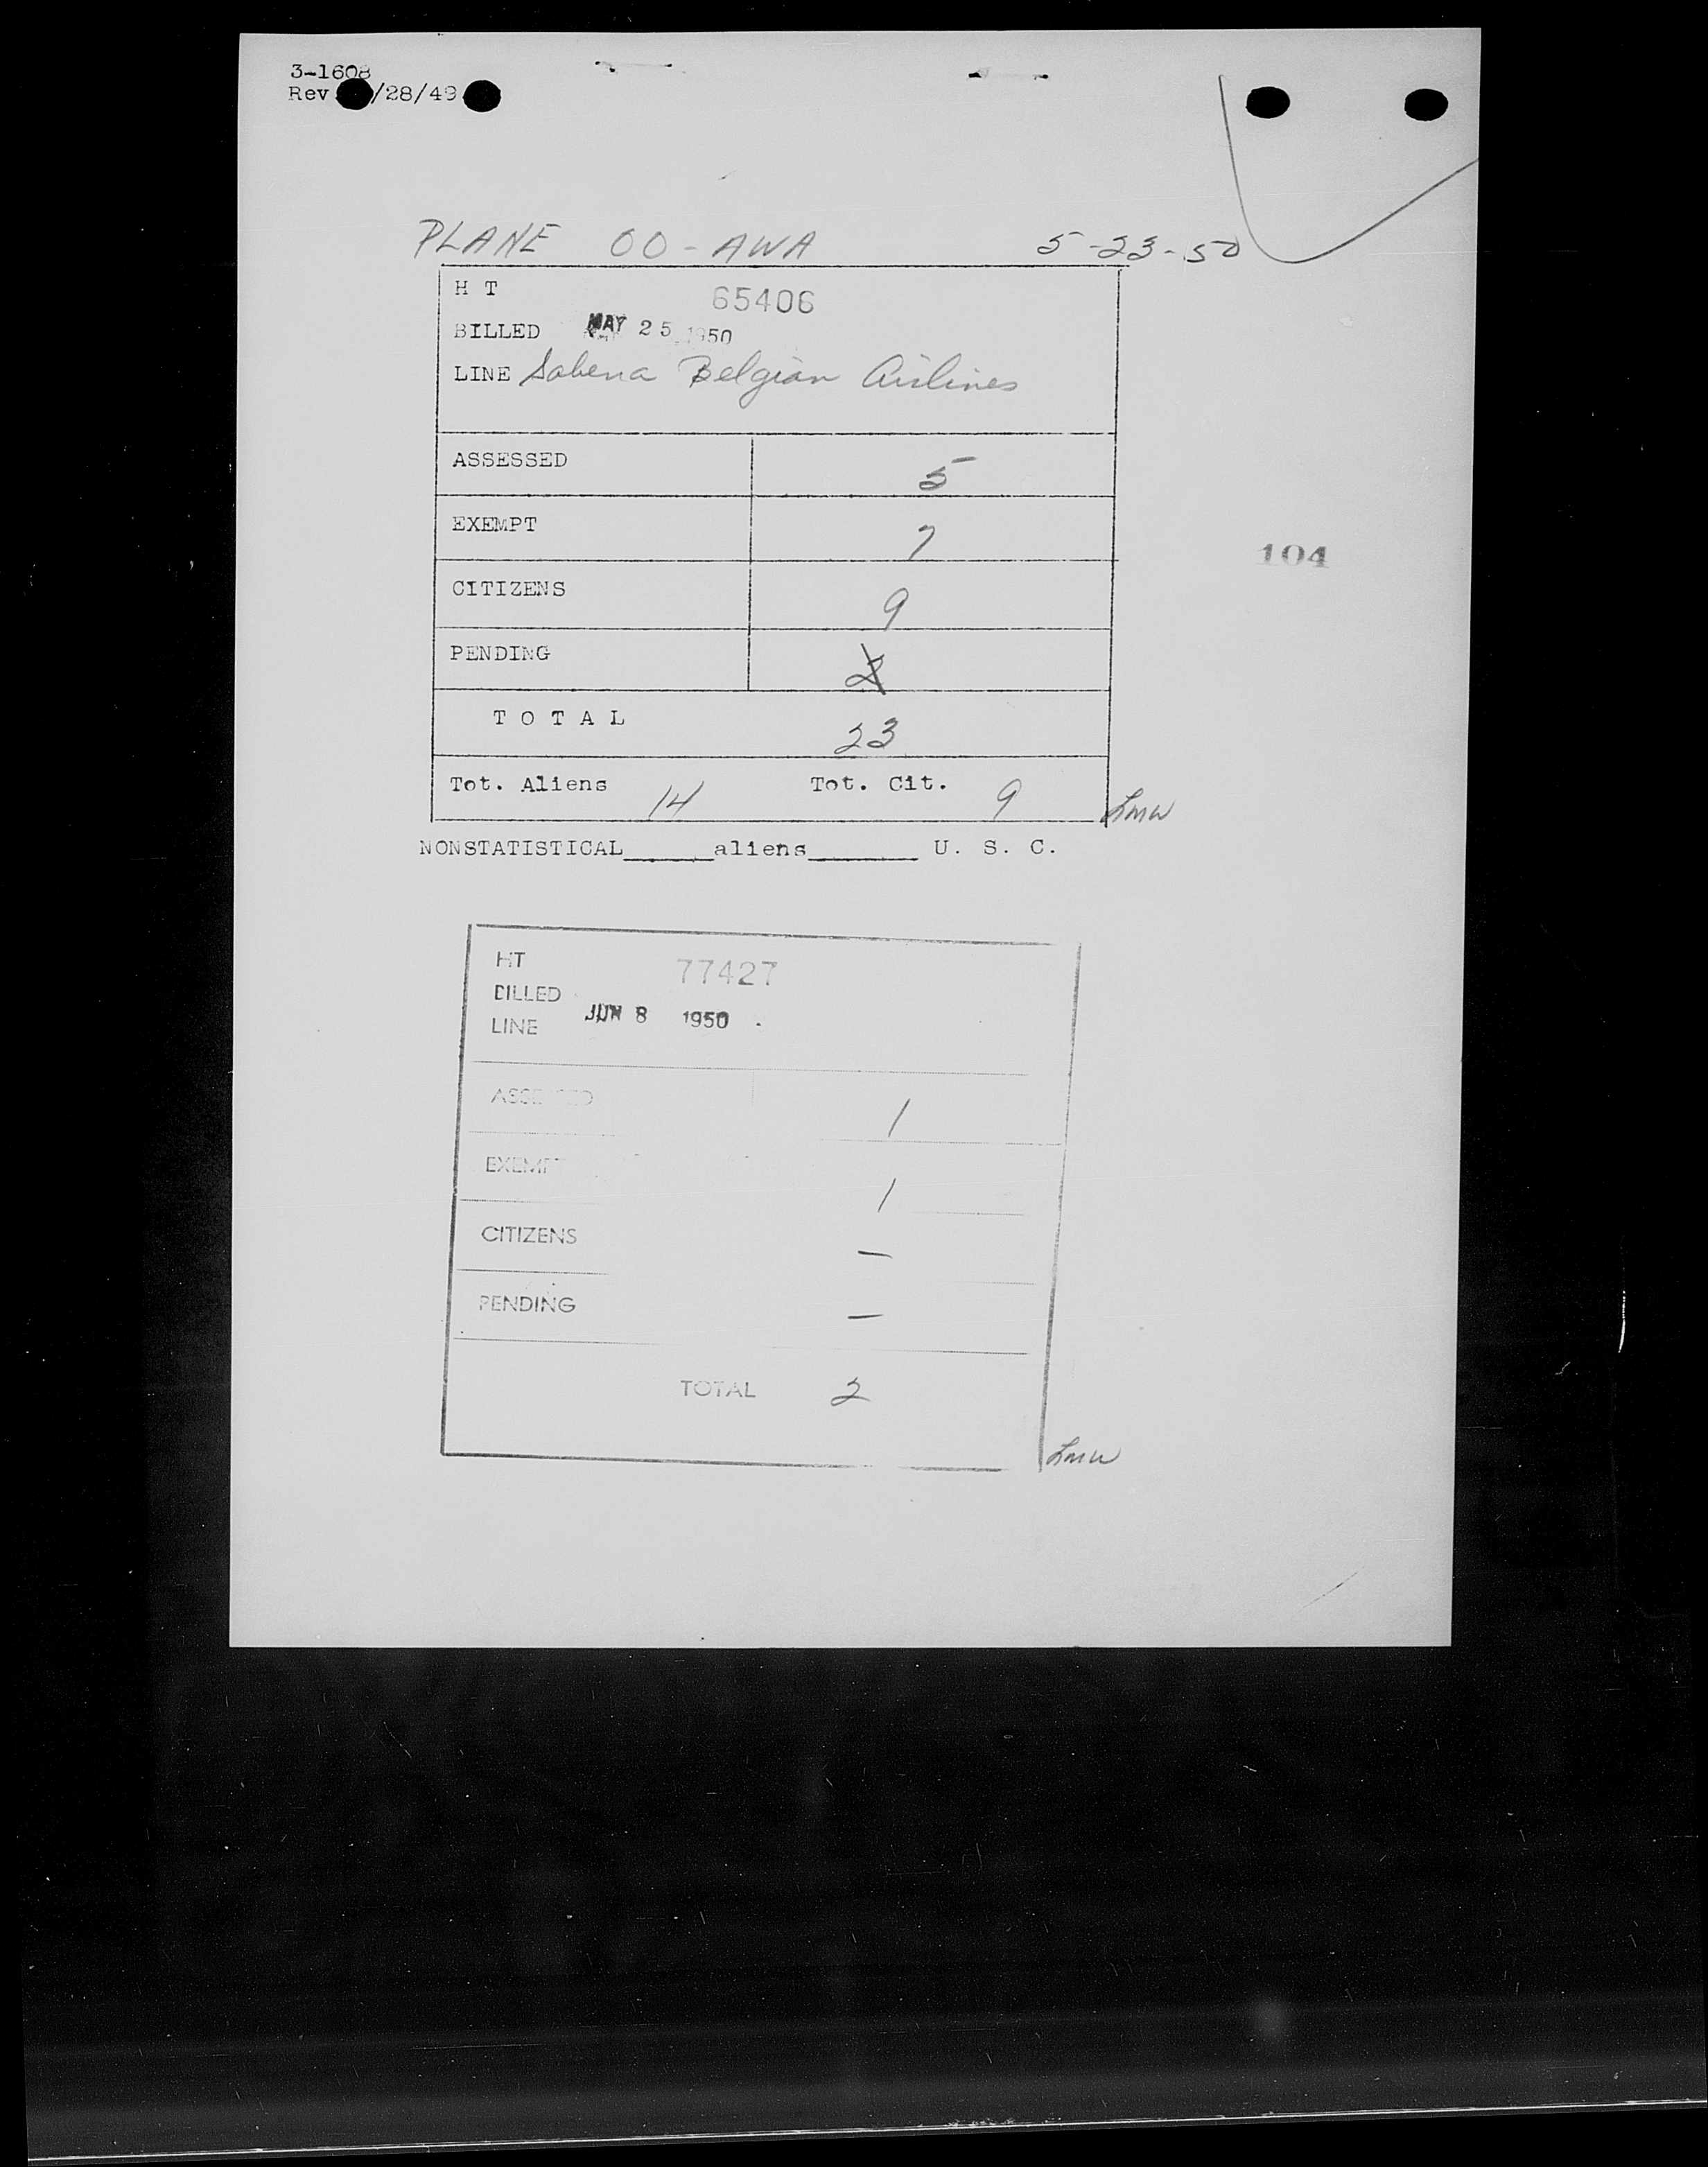 3-1608
Rev /28/49
PLANE OO-AWA 5-23-50
H T 65406
BILLED MAY 25 1950
LINE Sabena Belgian Airlines
ASSESSED 5
EXEMPT 7
104
CITIZENS 9
PENDING 2
T O T A L 23
Tot. Aliens 14 Tot. Cit. 9 LMW
NONSTATISTICAL______aliens_______ U. S. C.
HT 77427
BILLED JUN 8 1950
LINE
ASSESSED 1
EXEMPT 1
CITIZENS —
PENDING —
TOTAL 2
LMW